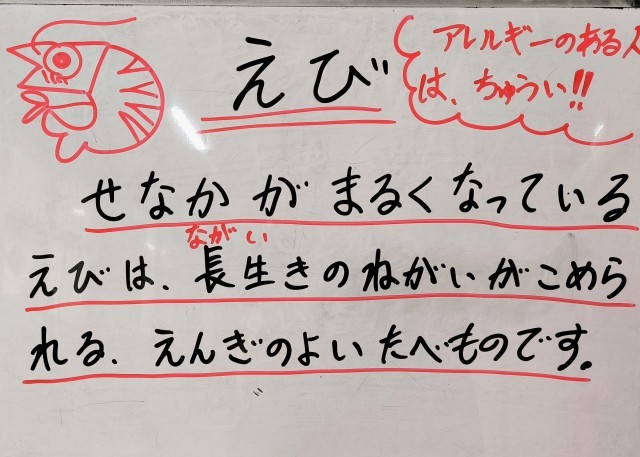 えび
アレルギーのある人
は、ちゅうい!!
せなかがまるくなっている
ながい
えびは、長生きのねがいがこめら
れる、えんぎのよいたべものです。